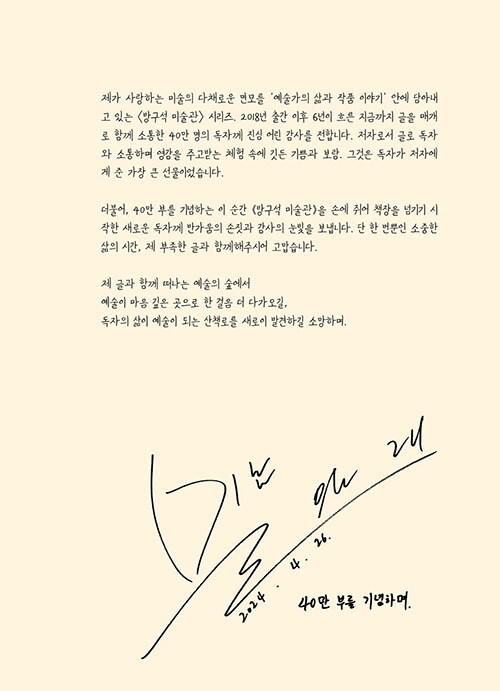 제가 사랑하는 미술의 다채로운 면모를 '예술가의 삶과 작품 이야기' 안에 담아내
고 있는 〈방구석 미술관〉 시리즈. 2018년 출간 이후 6년이 흐른 지금까지 글을 매개
로 함께 소통한 40만 명의 독자께 진심 어린 감사를 전합니다. 저자로서 글로 독자
와 소통하며 영감을 주고받는 체험 속에 깃든 기쁨과 보람. 그것은 독자가 저자에
게 준 가장 큰 선물이었습니다.
더불어, 40만 부를 기념하는 이 순간 《방구석 미술관》을 손에 쥐어 책장을 넘기기 시
작한 새로운 독자께 반가움의 손짓과 감사의 눈빛을 보냅니다. 단 한 번뿐인 소중한
삶의 시간, 제 부족한 글과 함께해주시어 고맙습니다.
제 글과 함께 떠나는 예술의 숲에서
예술이 마음 깊은 곳으로 한 걸음 더 다가오길,
독자의 삶이 예술이 되는 산책로를 새로이 발견하길 소망하며.
2024. 4. 26.
40만 부를 기념하며.